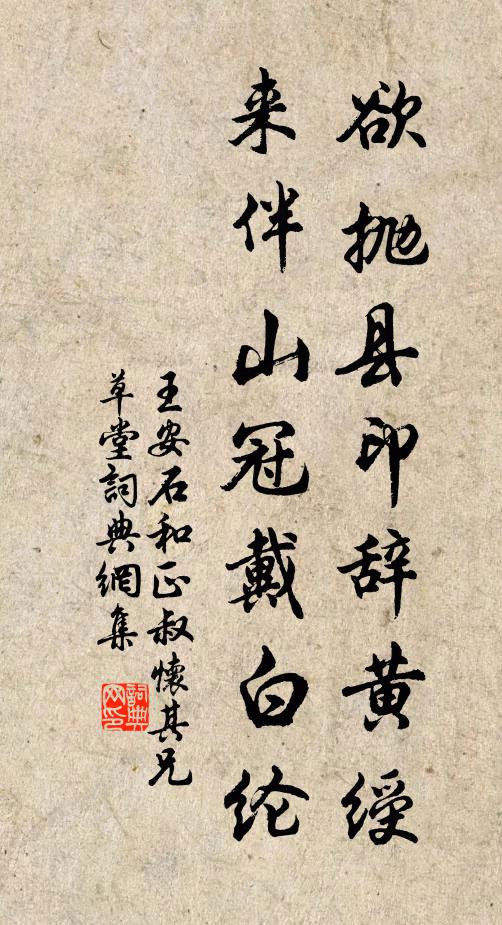 欲抛县印辞黄绶
来伴山冠戴白纶
王安石和正叔懷其兄
草堂詞典網集
詞典网印